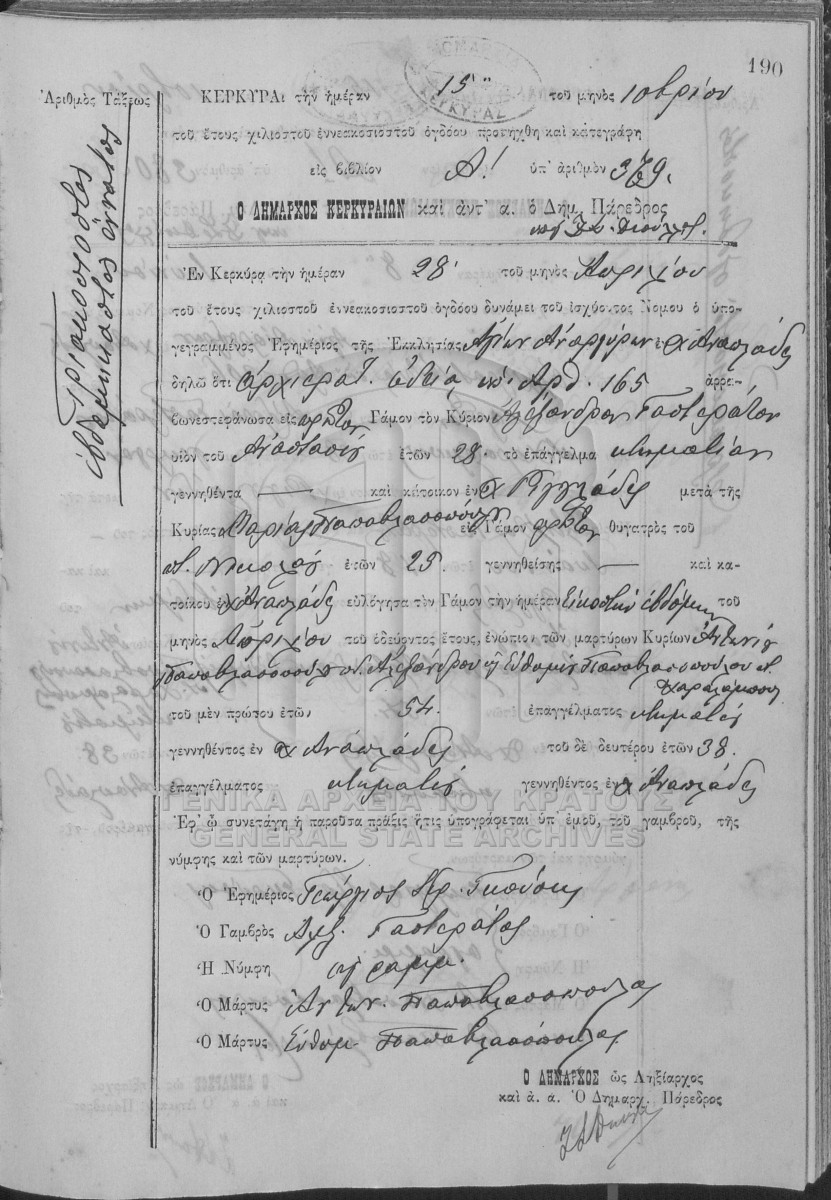 190
Ἀριθμὸς Τάξεως
Τριακοστὸς
ἑβδομηκοστὸς ἔννατος
ΚΕΡΚΥΡΑι τὴν ἡμέραν 15 τοῦ μηνὸς 10βρίου
τοῦ ἔτους χιλιοστοῦ ἐννεακοσιοστοῦ ὀγδόου προσήχθη καὶ κατεγράφη
εἰς βιβλίον Α! ὑπ' ἀριθμὸν 379.
Ὁ ΔΗΜΑΡΧΟΣ ΚΕΡΚΥΡΑΙΩΝ καὶ ἀντ' α. ὁ Δημ. Πάρεδρος
Ἐν Κερκύρᾳ τὴν ἡμέραν 28 τοῦ μηνὸς Ἀπριλίου
τοῦ ἔτους χιλιοστοῦ ἐννεακοσιοστοῦ ὀγδόου δυνάμει τοῦ ἰσχύοντος Νόμου ὁ ὑπο-
γεγραμμένος Ἐφημέριος τῆς Ἐκκλησίας Ἁγίων Ἀναργύρων ἐν χ Ἀναπλάδες
δηλῶ ὅτι Ἀρχιερατ. ἀδείᾳ ὑπ' Ἀρθ. 165 ἀρρα-
βωνεστεφάνωσα εἰς πρῶτον Γάμον τὸν Κύριον Ἀλέξανδρον Γαστεράτον
υἱὸν τοῦ Ἀναστασίου ἐτῶν 28 τὸ ἐπάγγελμα κτηματίαν
γεννηθέντα — καὶ κάτοικον ἐν χ Ῥιγγλάδες μετὰ τῆς
Κυρίας Μαρίας Παπαβλασοπούλου εἰς Γάμον πρῶτον θυγατρὸς τοῦ
π. Νικολάου ἐτῶν 25. γεννηθείσης — καὶ κα-
τοίκου ἐν χ Ἀναπλάδες εὐλόγησα τὸν Γάμον τὴν ἡμέραν Εἰκοστὴν ἑβδόμην τοῦ
μηνὸς Ἀπριλίου τοῦ ὁδεύοντος ἔτους, ἐνώπιον τῶν μαρτύρων Κυρίων Ἀντωνίου
Παπαβλασοπούλου Ἀλεξάνδρου ᾗ Εὐθυμίου Παπαβλασοπούλου π.
Χαραλάμπους
τοῦ μὲν πρώτου ἐτῶν 54. ἐπαγγέλματος κτηματίου
γεννηθέντος ἐν χ Ἀναπλάδες τοῦ δὲ δευτέρου ἐτῶν 38.
ἐπαγγέλματος κτηματίου γεννηθέντος ἐν χ Ἀναπλάδες
ΓΕΝΙΚΑ ΑΡΧΕΙΑ ΤΟΥ ΚΡΑΤΟΥΣ
Ἐφ' ᾧ συνετάγη ἡ παροῦσα πρᾶξις ἥτις ὑπογράφεται ὑπ' ἐμοῦ, τοῦ γαμβροῦ, τῆς
GENERAL STATE ARCHIVES
νύμφης καὶ τῶν μαρτύρων.
Ὁ Ἐφημέριος Γεώργιος
Ὁ Γαμβρὸς Αλξ. Γαστεράτος
Ἡ Νύμφη ἀγραμμ.
Ὁ Μάρτυς Αντων. Παπαβλασοπουλος
Ὁ Μάρτυς Εὐθυμ. Παπαβλασόπουλος
Ὁ ΔΗΜΑΡΧΟΣ ὡς Ληξίαρχος
καὶ ἀ. α. Ὁ Δημαρχ. Πάρεδρος